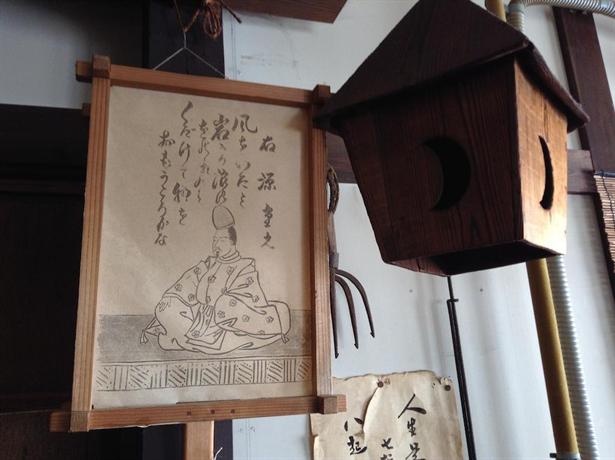 右 源重之
風をいたみ
岩うつ浪の
をのれのみ
くだけて物を
おもうころかな
人生
七転
八起